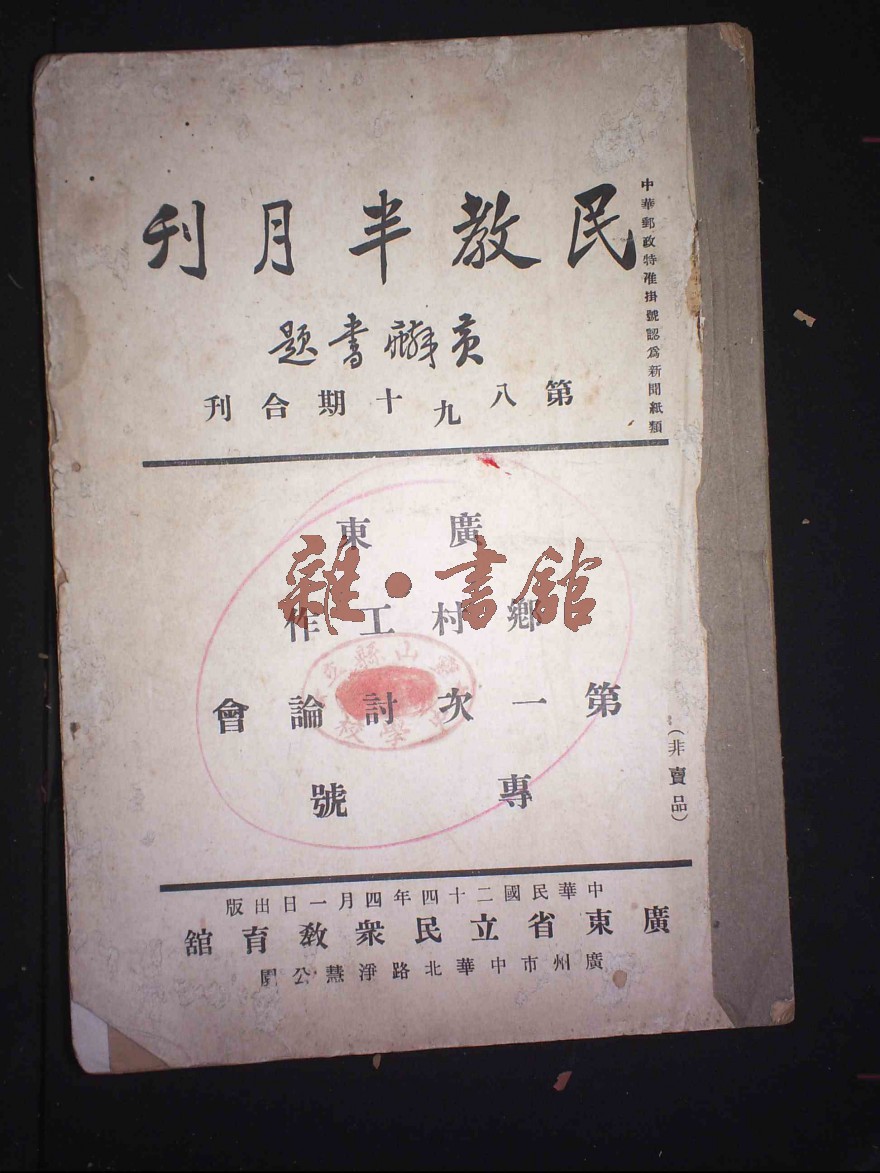 中華郵政特准掛號認爲新聞紙類
民教半月刊
黃麟書題
第八九十期合刊
廣東
鄉村工作
第一次討論會
專號
雜·書館
山縣立
學校
(非賣品)
中華民國二十四年四月一日出版
廣東省立民衆敎育館
廣州市中華北路淨慧公園